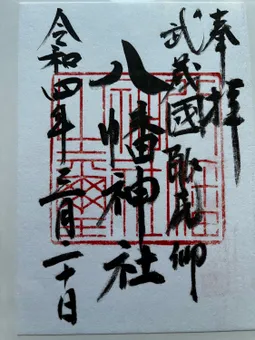 奉拝
武茂國
八幡神社
令和四年三月二十日